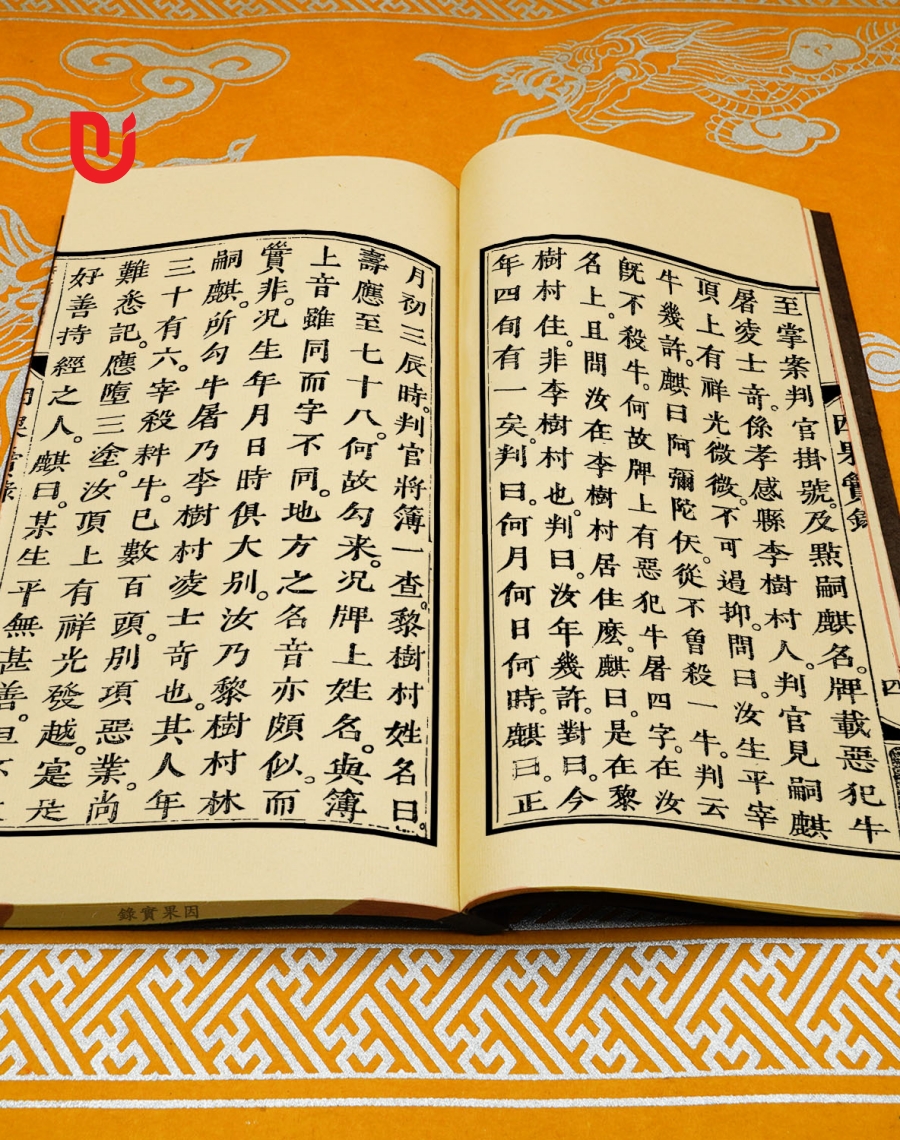 因果實錄
四
至掌案判官掛號。及點嗣麒名。牌載惡犯牛
屠凌士奇。係孝感縣李樹村人。判官見嗣麒
頂上有祥光微微。不可遏抑。問曰。汝生平宰
牛幾許。麒曰阿彌陀仸。從不曾殺一牛。判云
既不殺牛。何故牌上有惡犯牛屠四字。在汝
名上。且問汝在李樹村居住麽。麒曰。是在黎
樹村住。非李樹村也。判曰。汝年幾許。對曰。今
年四旬有一矣。判曰。何月何日何時。麒曰。正
月初三辰時。判官將簿一查。黎樹村姓名曰。
壽應至七十八。何故勾来。况牌上姓名。與簿
上音雖同而字不同。地方之名音亦頗似。而
實非。况生年月日時俱大別。汝乃黎樹村林
嗣麒。所勾牛屠乃李樹村凌士奇也。其人年
三十有六。宰殺耕牛。已數百頭。別項惡業。尚
難悉記。應墮三塗。汝頂上有祥光發越。寔是
好善持經之人。麒曰。某生平無甚善。但不
因果實錄